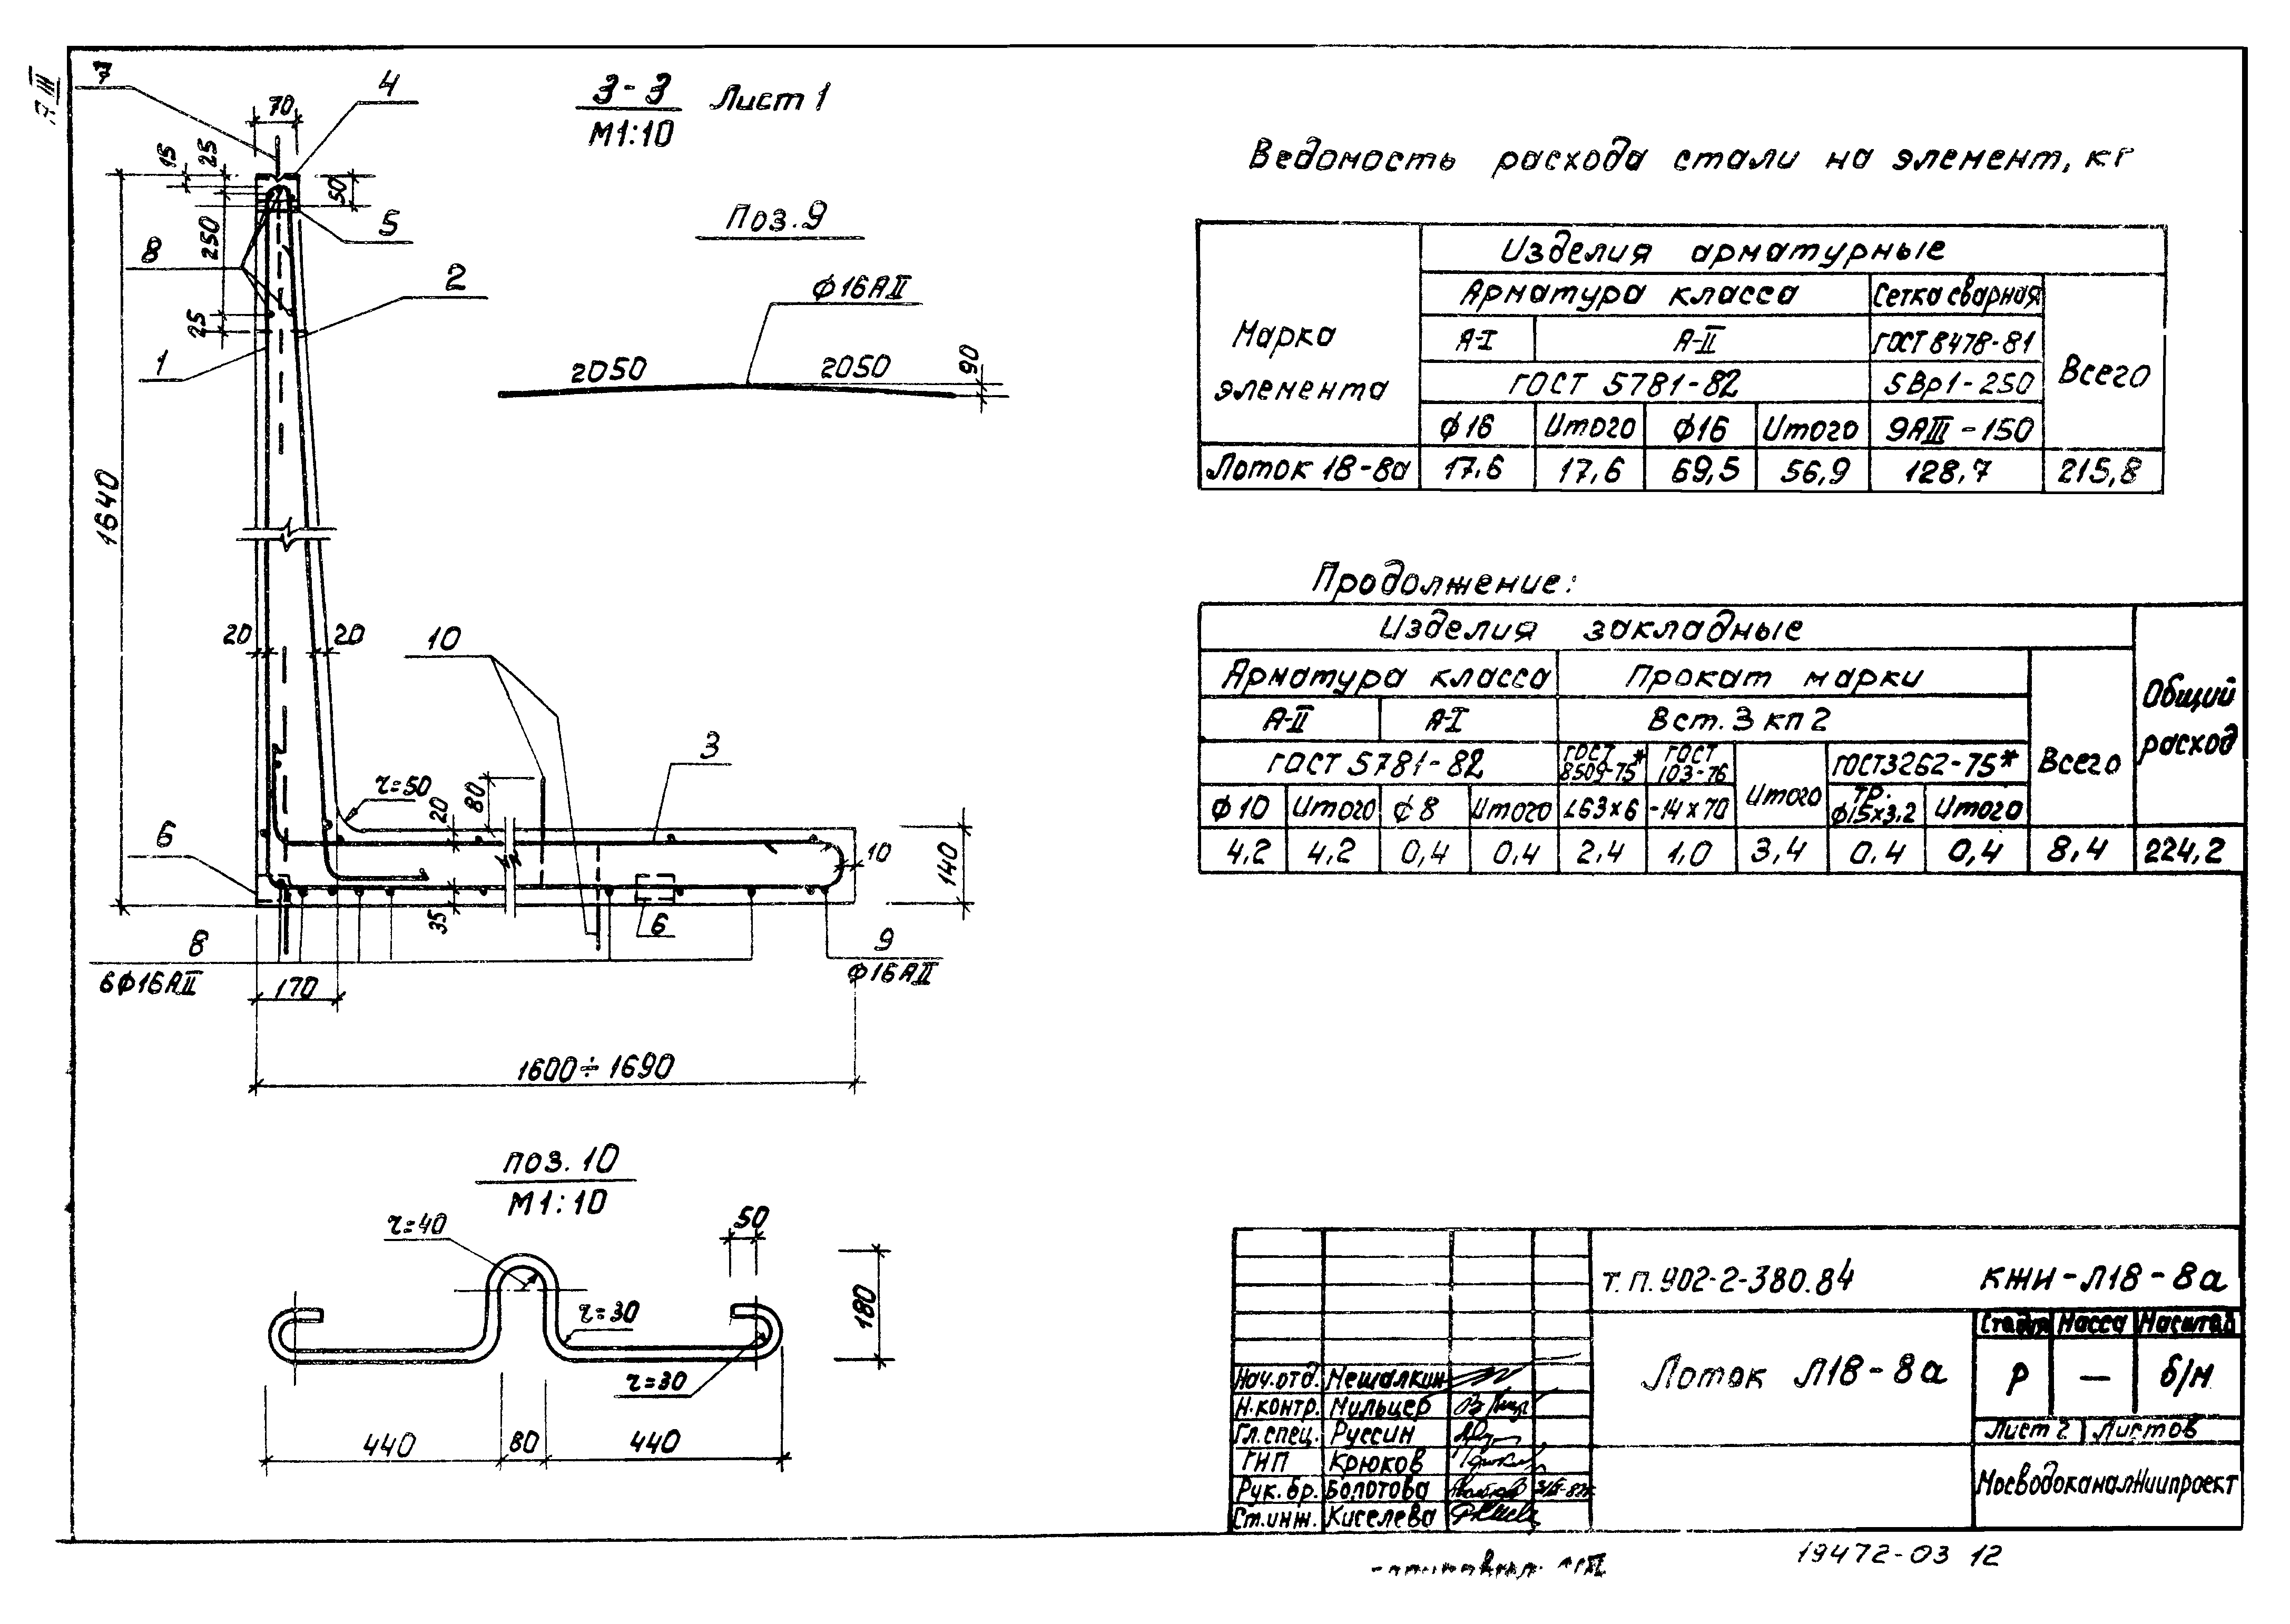 А III
7
4
3-3 Лист 1
М1:10
70
15
25
50
5
8
250
2
25
1
1640
20
20
10
3
80
τ=50
20
6
10
140
35
6
8
9
6ϕ16АII
ϕ16АII
170
1600÷1690
Поз.9
ϕ16АII
2050
2050
90
поз. 10
М1:10
τ=40
50
τ=30
180
τ=30
440
80
440
Ведомость расхода стали на элемент, кг
Марка элемента
Изделия арматурные
Арматура класса
Сетка сварная
Всего
А-I
А-II
ГОСТ 8478-81
ГОСТ 5781-82
5Вр1-250
ϕ16
Итого
ϕ16
Итого
9АIII-150
Лоток 18-8а
17.6
17,6
69,5
56,9
128,7
215,8
Продолжение:
Изделия закладные
Общий расход
Арматура класса
Прокат марки
Всего
А-II
А-I
Вст. 3 кп 2
ГОСТ 5781-82
ГОСТ 8509-75*
ГОСТ 103-76
Итого
ГОСТ3262-75*
ϕ10
Итого
ϕ8
Итого
∠63×6
-14×70
тр. ϕ15×3,2
Итого
4,2
4,2
0,4
0,4
2,4
1,0
3,4
0.4
0,4
8,4
224,2
Т.П.902-2-380.84
КЖИ-Л18-8а
Лоток Л18-8а
Стадия
Масса
Масштаб
Р
—
б/м
Лист 2
Листов
МосводоканалНиипроект
Нач.отд. Мешалкин
Н.контр. Мильцер
Гл.спец. Руссин
ГИП Крюков
Рук.бр. Болотова
Ст.инж. Киселева
19472-03 12